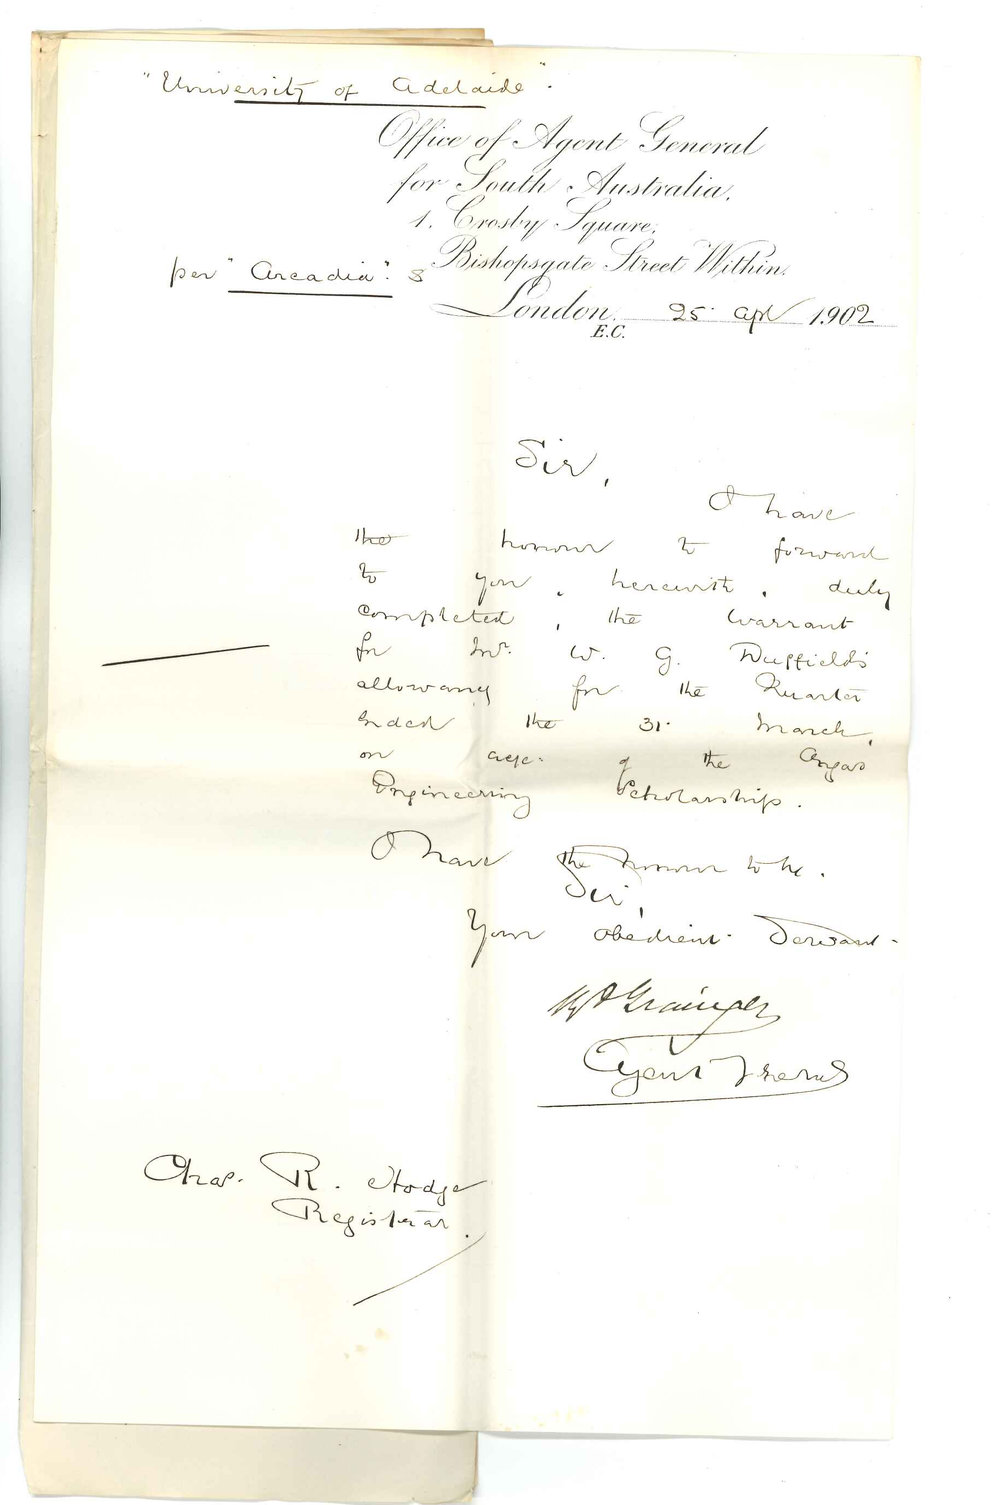 "University of Adelaide".
Office of Agent General
for South Australia,
1. Crosby Square,
Bishopsgate Street Within,
per "Arcadia". s
London, 25 Apl 1902
E.C.
Sir,
I have
the honour to forward
to you, herewith, duly
completed, the warrant
for Mr. W. G. Duffield's
allowance for the Quarter
ended the 31 March,
on a/c. of the Angas
Engineering Scholarship.
I have the honour to be.
Sir,
Your obedient Servant
Grainger
Agent General
Chas. R. Hodge
Registrar.